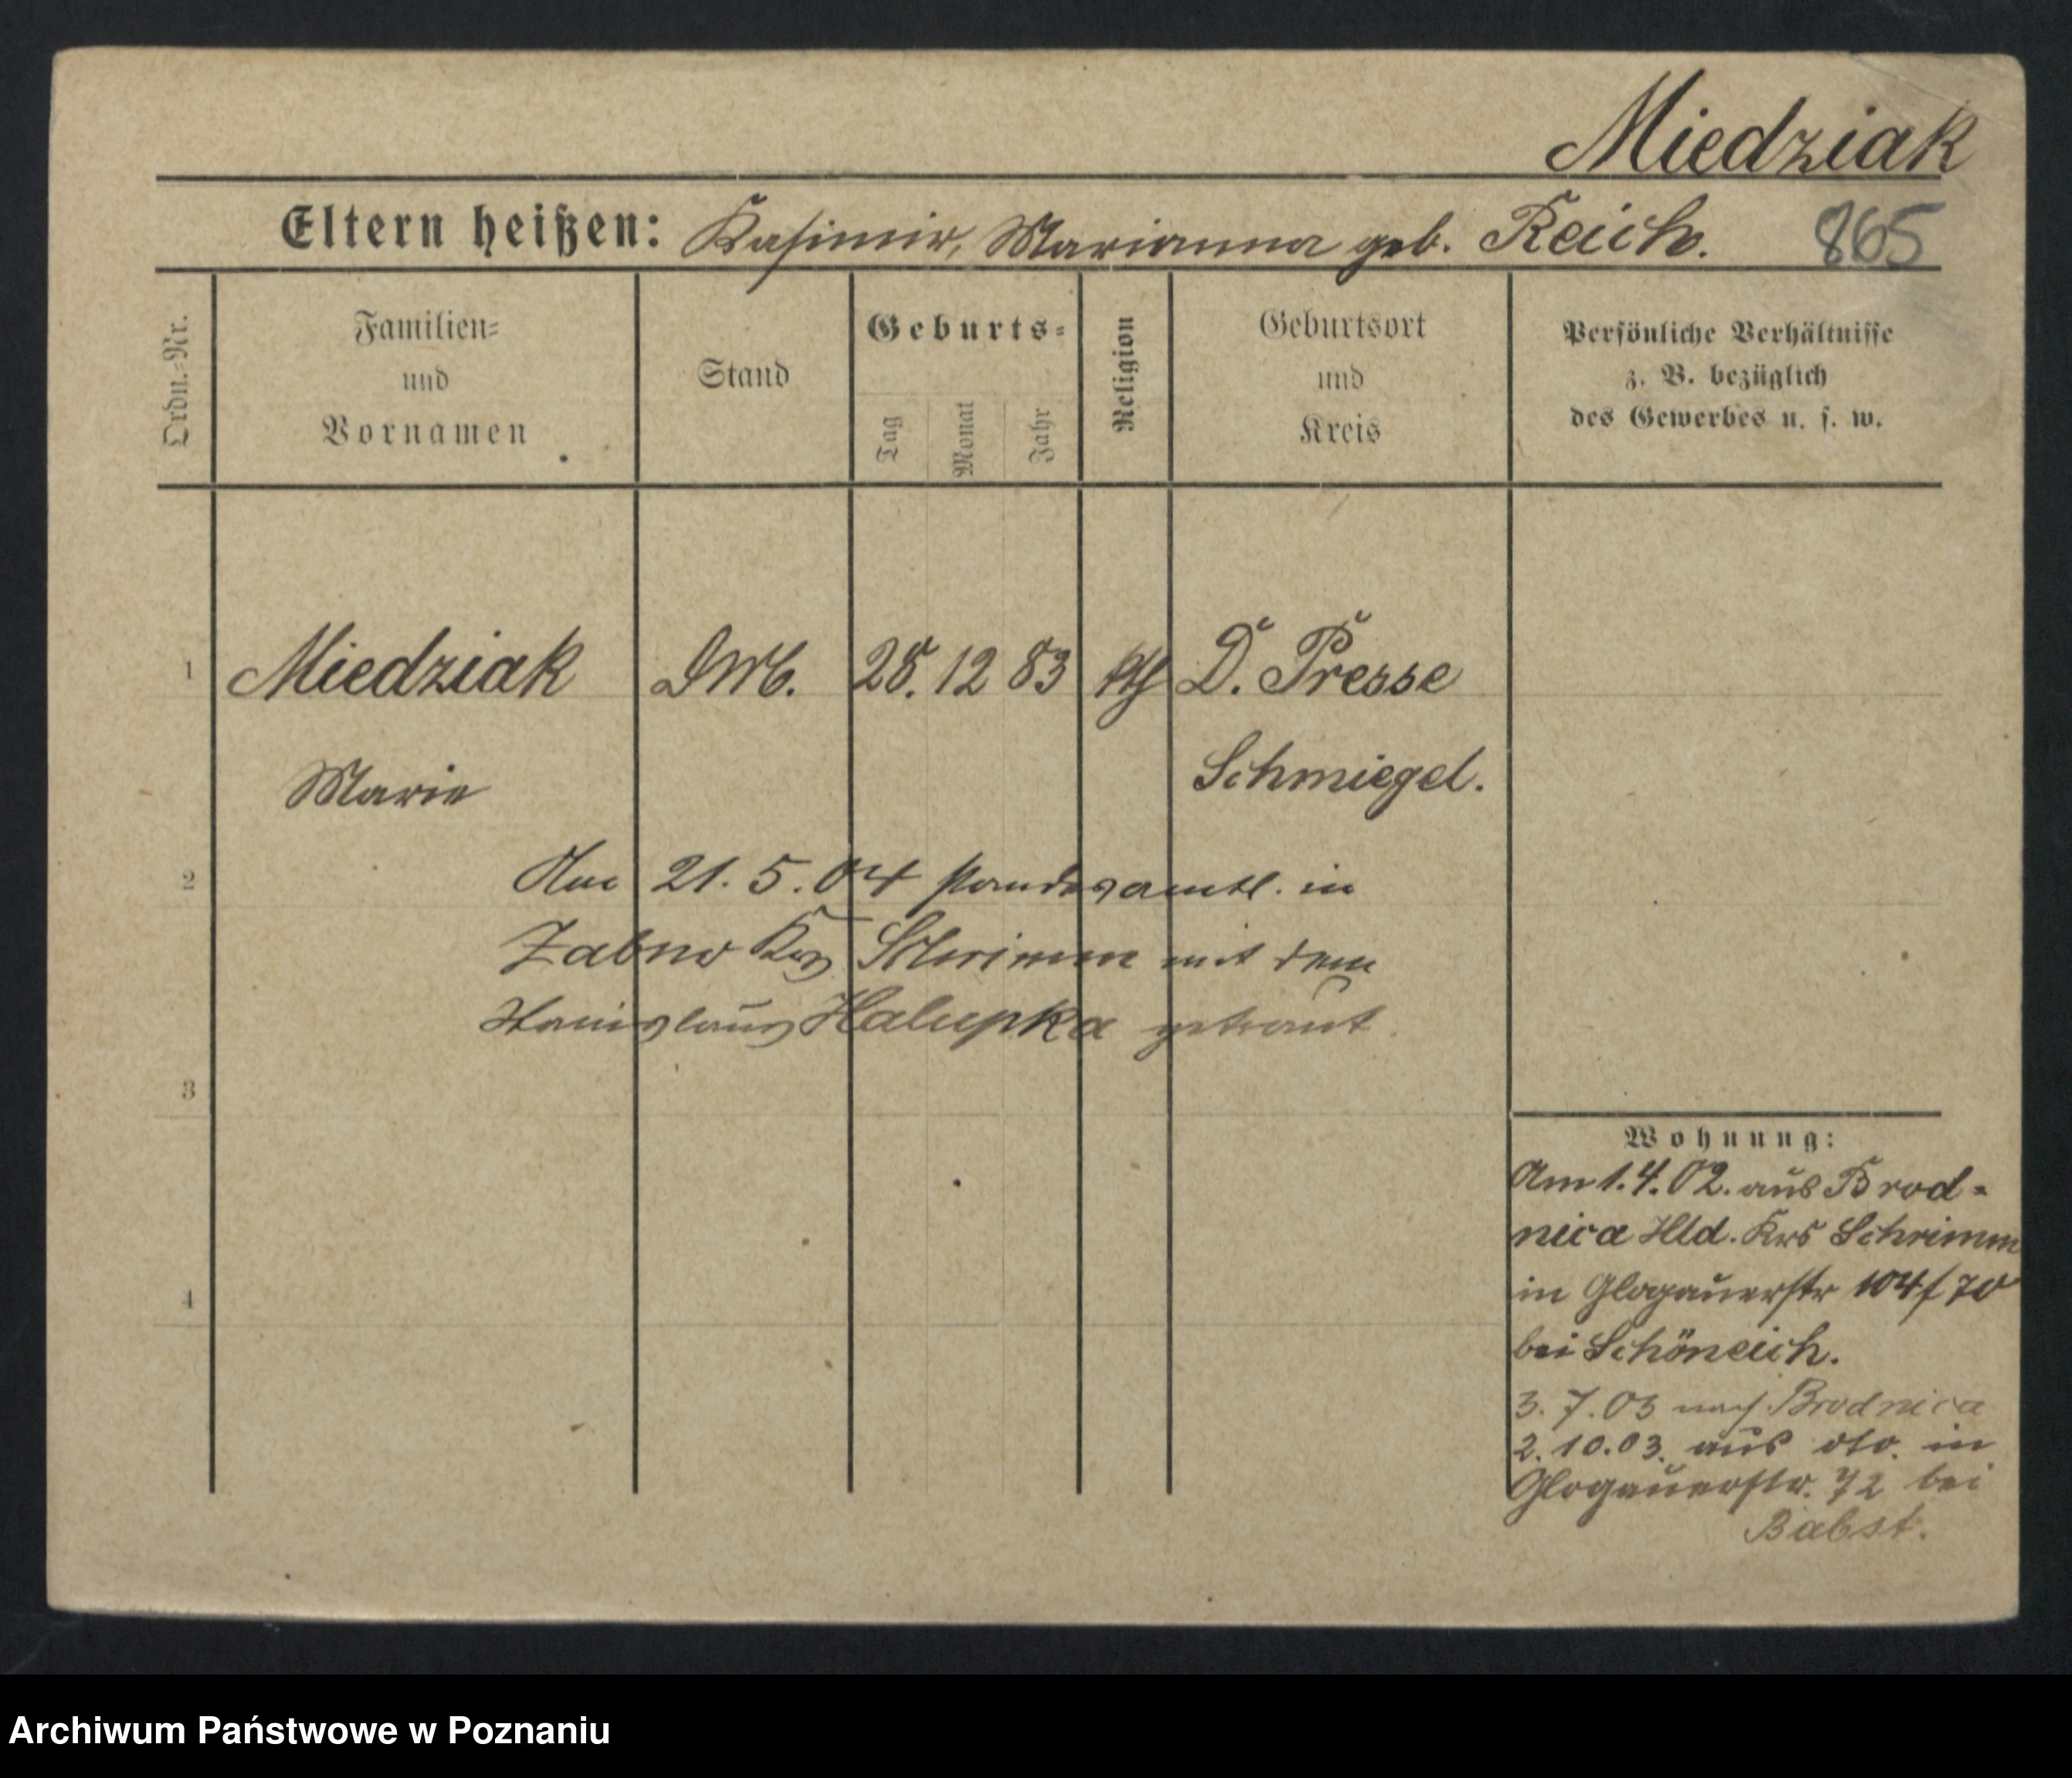 Miedziak
Eltern heißen: Kasimir, Marianna geb. Reich. 865
Ordn.-Nr.
Familien-
und
Vornamen
Stand
Geburts-
Tag
Monat
Jahr
Religion
Geburtsort
und
Kreis
Persönliche Verhältnisse
z. B. bezüglich
des Gewerbes u. s. w.
1 Miedziak 28. 12 83 kth D. Presse
Marie Schmiegel.
2 Am 21. 5. 04 standesamtl. in
Zabno Krs Schrimm mit dem
Stanislaus Halupka getraut.
3
4
Wohnung:
Am 1. 4. 02. aus Brod-
nica Hld. Krs Schrimm
in Glogauerstr 104/70
bei Schöneich.
3. 7. 03 nach Brodnica
2. 10. 03. aus dto. in
Glogauerstr. 72 bei
Babst.
Archiwum Państwowe w Poznaniu